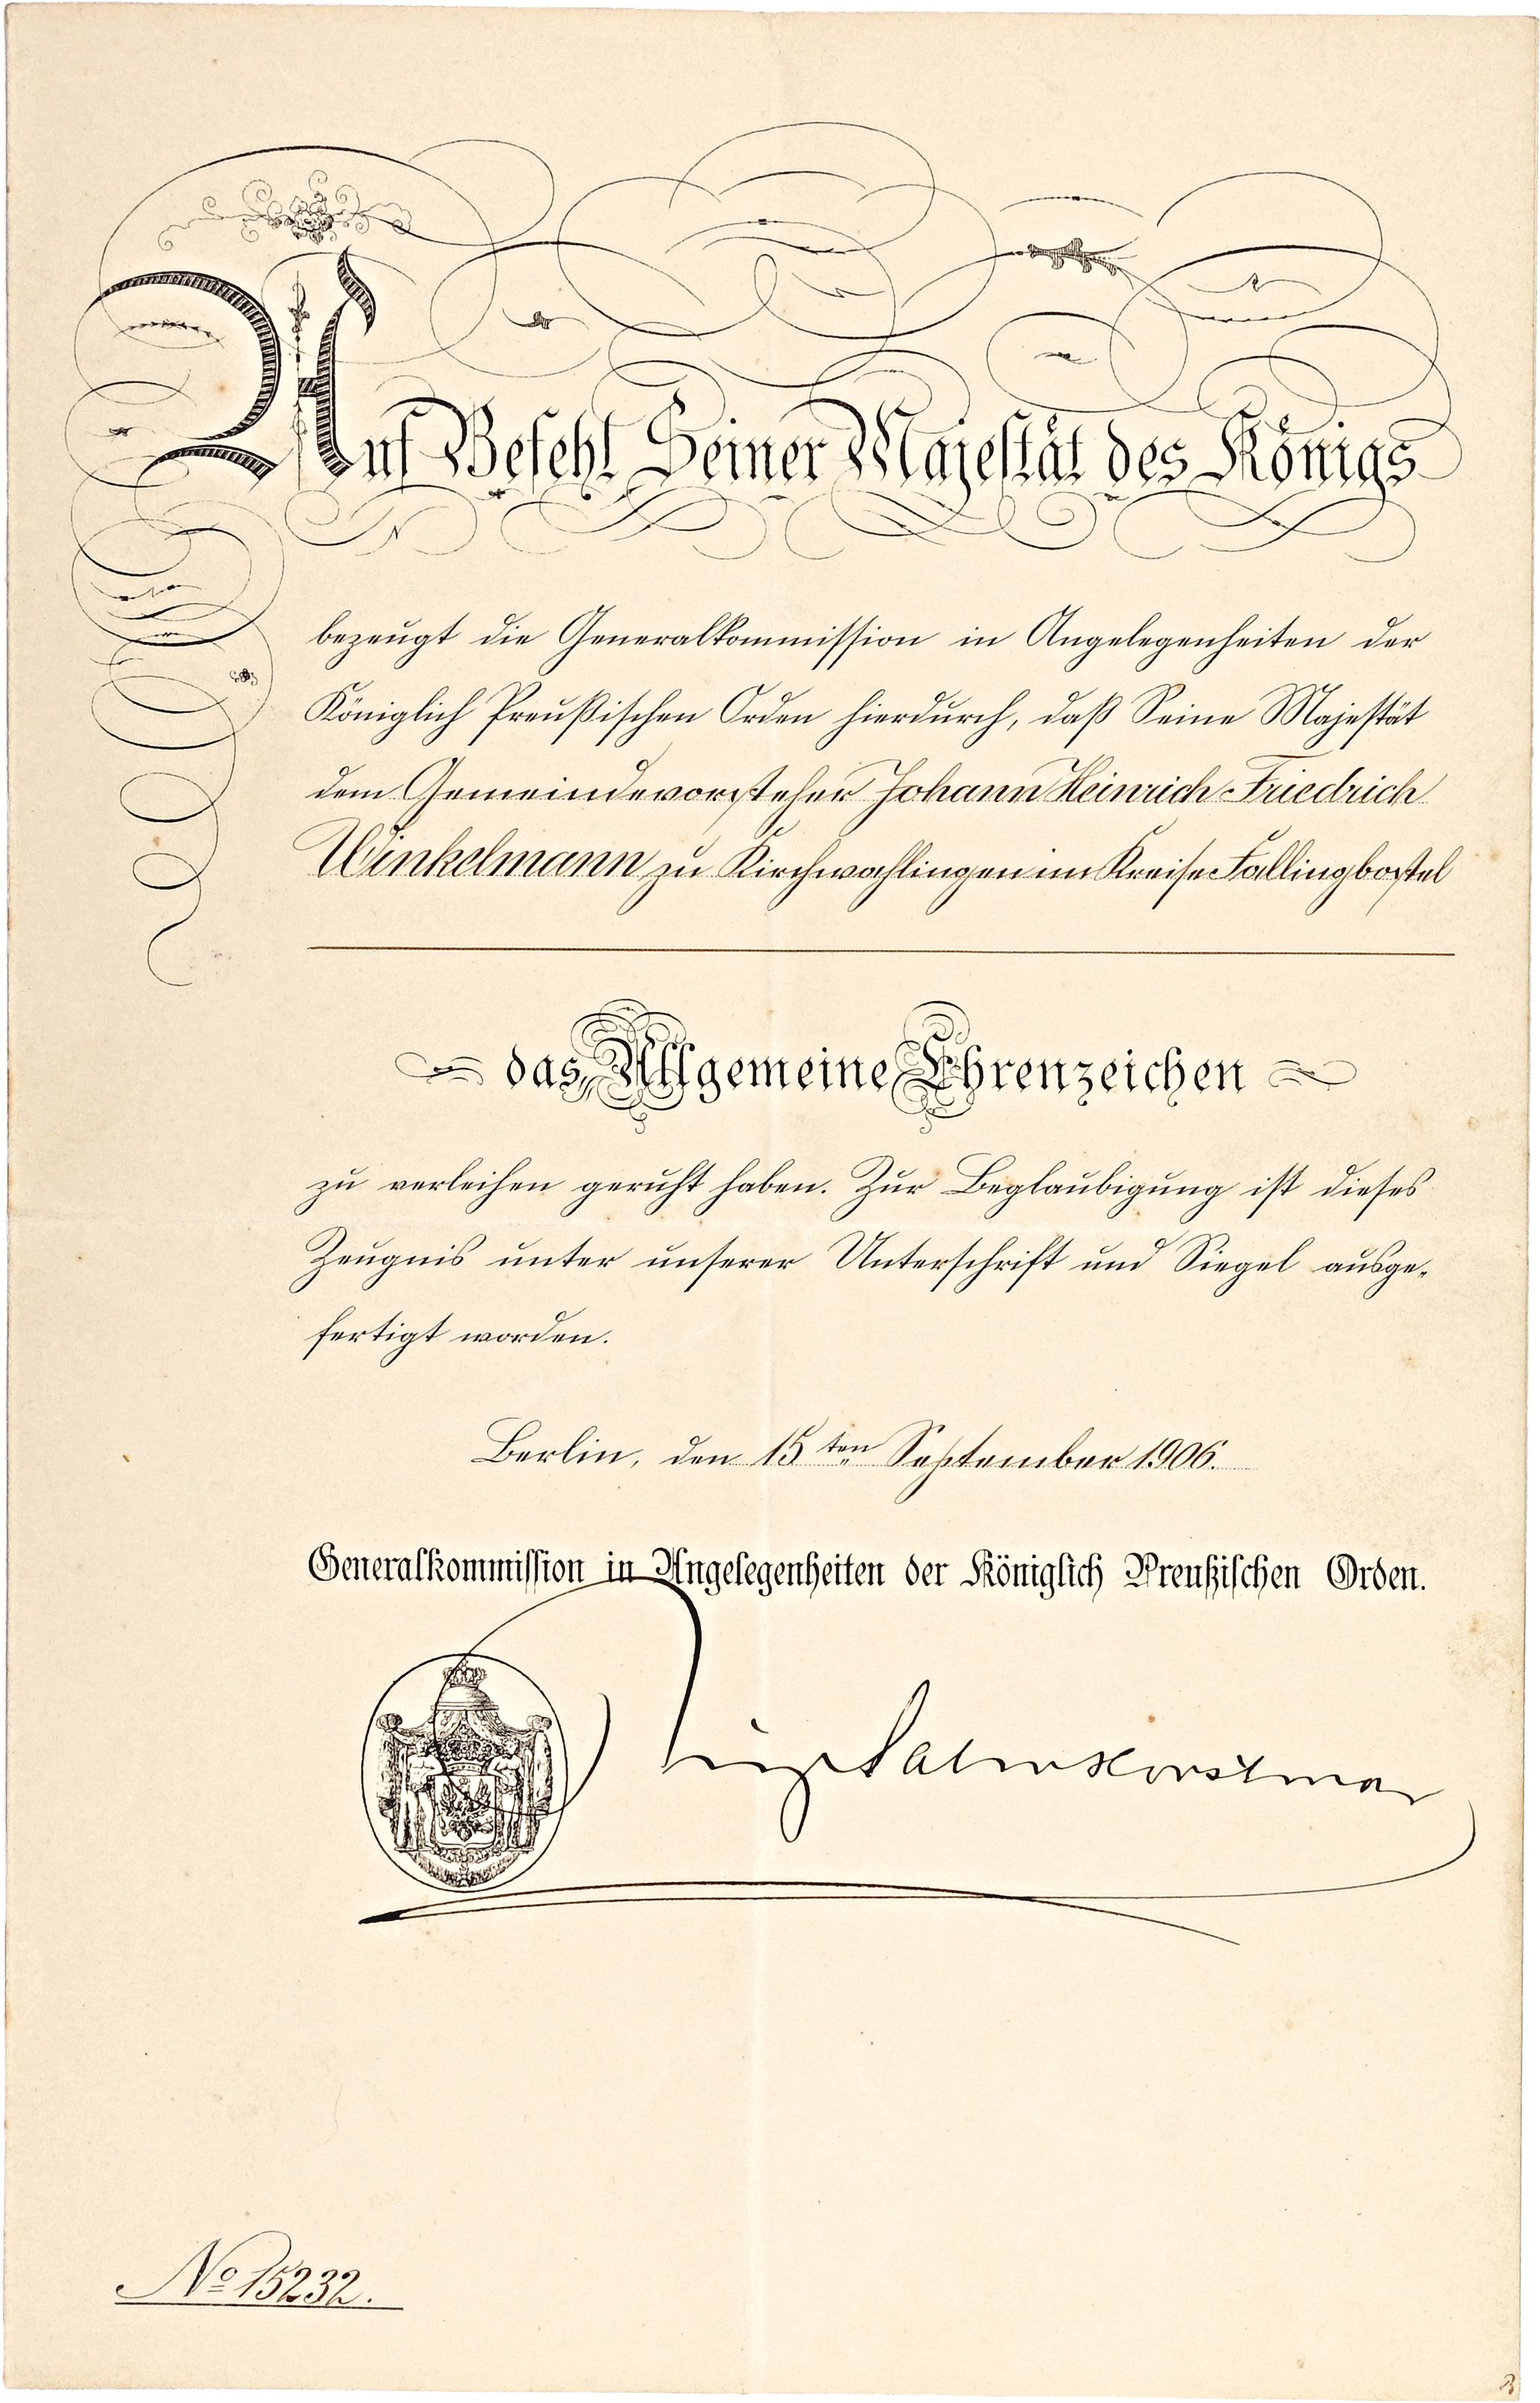 Auf Befehl Seiner Majestät des Königs
bezeugt die Generalkommission in Angelegenheiten der
Königlich Preußischen Orden hierdurch, daß Seine Majestät
dem Gemeindevorsteher Johann Heinrich Friedrich
Winkelmann zu Kirchwahlingen im Kreise Fallingbostel
das Allgemeine Ehrenzeichen
zu verleihen geruht haben. Zur Beglaubigung ist dieses
Zeugnis unter unserer Unterschrift und Siegel ausge-
fertigt worden.
Berlin, den 15ten September 1906.
Generalkommission in Angelegenheiten der Königlich Preußischen Orden.
Salm Horstmar
No 15232.